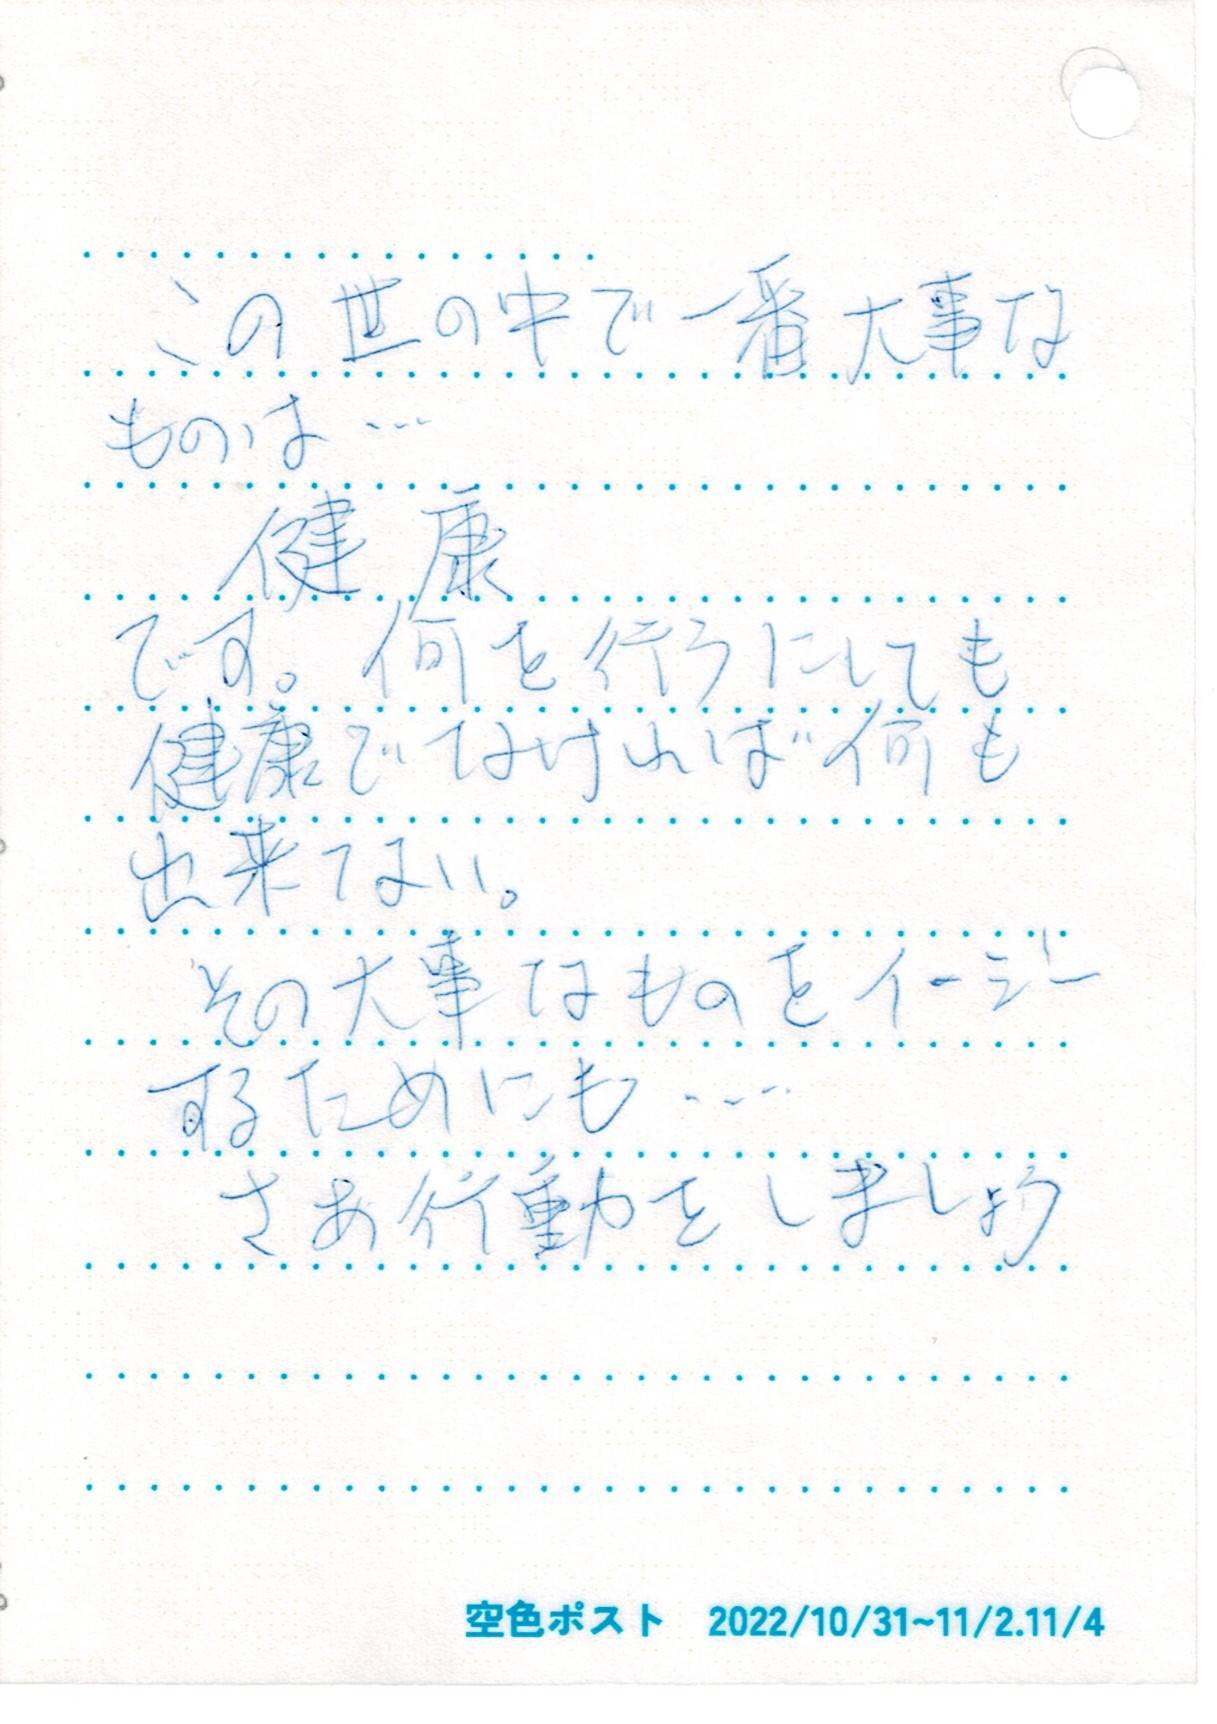 この世の中で一番大事な
ものは…
健康
です。何を行うにしても
健康でなければ何も
出来てない。
その大事なものをイージー
するためにも……
さあ行動をしましょう
空色ポスト 2022/10/31~11/2.11/4